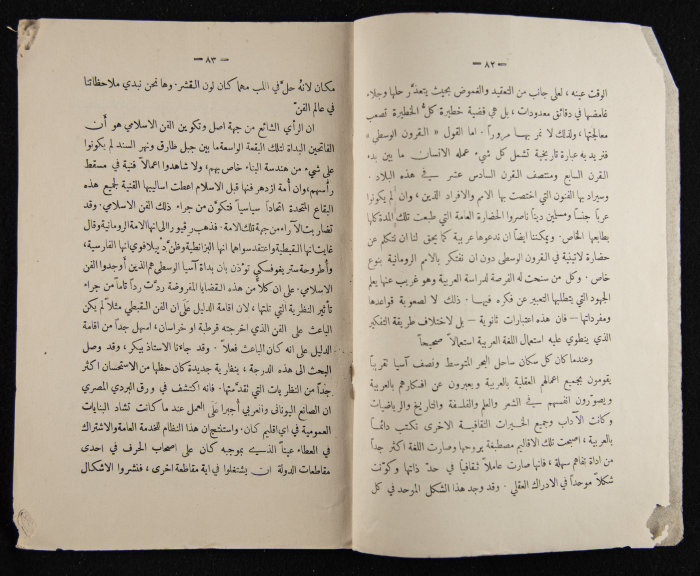 — ٨٢ —
الوقت عينه ، لعلى جانب من التعقيد والغموض بحيث يتعذّر حلها وجلاء
غامضها في دقائق معدودات ، بل هي قضية خطيرة كل الخطيرة تصعب
معالجتها ، ولذلك لا نمر بهـا مروراً . اما القول « القرون الوسطى »
فنريد به عبارة تاريخية تشمل كل شيء عمله الانسان ما بين بدء
القرن السابع ومنتصف القرن السادس عشر في هذه البلاد .
وسيراد بها الفنون التي اختصت بها الامم والافراد الذين ، وان لم يكونوا
عرباً جنساً ومسلمين ديناً ناصروا الحضارة العامة التي طبعت تلك المدة كلها
بطابعها الخاص . ويمكننا ايضاً ان ندعوها عربية كما يحق لنا ان نتكلم عن
حضارة لاتينية في القرون الوسطى دون ان نفتكر بالامم الرومانية بنوع
خاص . وكل من سنحت له الفرصة لدراسة العربية وهو غريب عنها يعلم
الجهود التي يتطلبها التعبير عن فكره فيهـا . ذلك لا لصعوبة قواعدها
ومفرداتها – فان هذه اعتبارات ثانوية – بل لاختلاف طريقة التفكير
الذي ينطوي عليه استعمال اللغة العربية استعمالاً صحيحاً
وعندما كان كل سكان ساحل البحر المتوسط ونصف آسيا تقريباً
يقومون بجميع اعمالهم العقلية بالعربية ويعبرون عن افكارهم بالعربية
ويصوّرون انفسهم في الشعر والعلم والفلسفة والتاريخ والرياضيات
وكانت الآداب وجميع الخبرات الثقافيـة الاخرى تكتب دائمـاً
بالعربية ، اصبحت تلك الاقاليم مصطبغة بروحها وصارت اللغة اكثر جداً
من اداة تفاهم سهلة ، فانها صارت عاملاً ثقافياً في حدّ ذاتها وكوّنت
شكلاً موحداً في الادراك العقلي . وقد وجد هذا الشكل الموحد في كل
— ٨٣ —
مكان لانهُ حلّ في اللب مهما كان لون القشر . وها نحن نبدي ملاحظاتنا
في عالم الفنّ
ان الرأي الشائع من جهة اصل وتكوين الفن الاسلامي هو أن
الفاتحين البداة لتلك البقعة الواسعة ما بين جبل طارق ونهر السند لم يكونوا
على شيء من هندسة البناء خاص بهم ، ولا شاهدوا اعمالاً فنية في مسقط
رأسهم ، وان أمة ازدهر فنها قبل الاسلام اعطت اساليبها الفنية لجميع هذه
البقاع المتحدة اتحاداً سياسياً فتكوّن من جراء ذلك الفن الاسلامي . وقد
تضاربت الآراء من جهة تلك الامة . فذهب رڤيورا الى انها الامة الرومانية وقال
غايت انها القبطية واعتقد سواهما انها البزانطية وظنّ ديولافوي انها الفارسية ،
وأطروحة ستريغوفسكي تؤذن بان بداة آسيا الوسطى هم الذين أوجدوا الفن
الاسلامي . على ان كلاً من هذه القضايا المفروضة ردّت رداً تاماً من جراء
تأثير النظرية التي تلتها ، لان اقامة الدليل على ان الفن القبطي مثلاً لم يكن
الباعث على الفن الذي اخرجته قرطبة او خراسان ، اسهل جداً من اقامة
الدليل على انه كان الباعث فعلاً . وقد جاءنا الاستاذ بيكر ، وقد وصل
البحث الى هذه الدرجة ، بنظرية جديدة كان حظها من الاستحسان اكثر
جداً من النظريات التي تقدّمتها . فانه اكتشف في ورق البردي المصري
ان الصانع اليوناني والعربي أجبرا على العمل عند ما كانت تشاد البنايات
العمومية في اي اقليم كان . واستنتج ان هذا النظام للخدمة العامة والاشتراك
في العطاء عيناً الذي بموجبه كان على اصحاب الحرف في احدى
مقاطعات الدولة ان يشتغلوا في اية مقاطعة اخرى ، فنشروا الاشكال